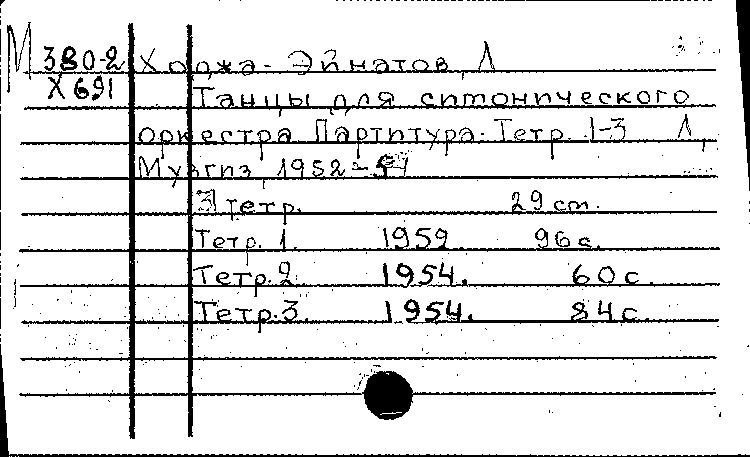 М 380-2 Ходжа-Эйнатов, Л
Х 691
Танцы для симфонического
оркестра Партитура. Тетр. 1-3 Л.,
Музгиз, 1952-54
3 тетр. 29 см.
Тетр. 1. 1952 96 с.
Тетр. 2 1954. 60 с.
Тетр. 3. 1954. 84 с.